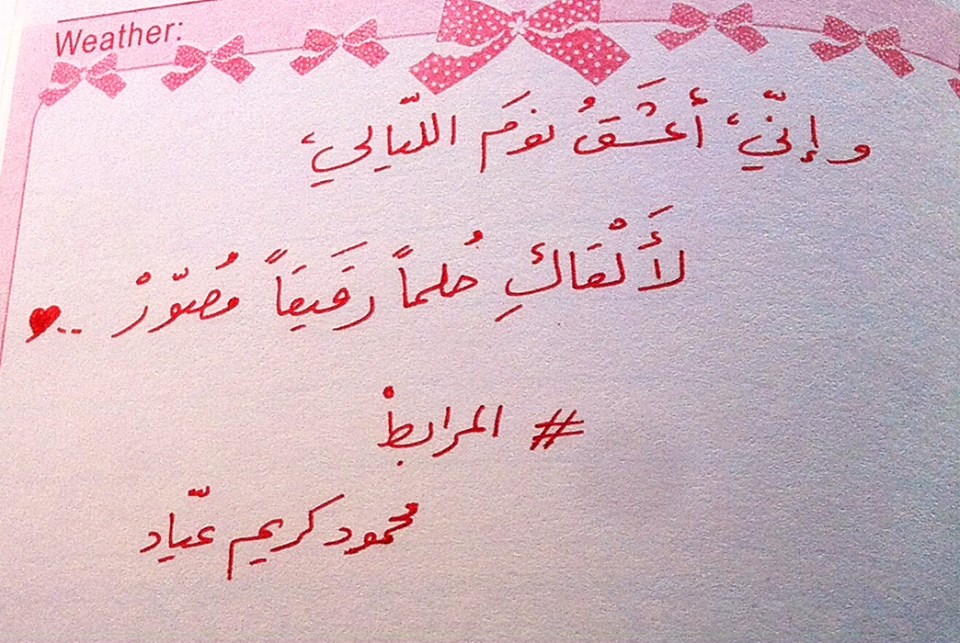 Weather:
وإنّي، أعشَقُ نومَ اللّيالي،
لأَلْقاكِ حُلماً رَقيقاً مُصوّرْ .. ♥
# المرابط
محمود كريم عيّاد